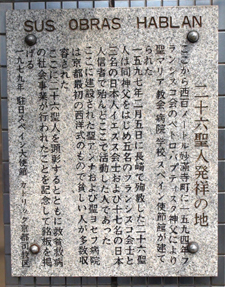 SUS OBRAS HABLAN
二十六聖人発祥の地
ここから西百メートル妙満寺町に一五九四年フ
ランシスコ会のペトロ・バプチスタ神父により
聖マリア教会 病院 学校 スペイン使節館が建て
られた
一五九七年二月五日に長崎で殉教した二十六聖
人は同神父をはじめ五名のフランシスコ会士と
三名の日本人イエズス会士および十七名の日本
人信者で殆んどここで活動した人々であった
ここに建設された聖アンナおよび聖ヨセフ病院
は京都最初の西洋式のもので貧しい人が多数収
容された
ここに二十六聖人を顕彰するとともに救貧救病
の社会事業が行われたことを記念して銘板を掲
げる
一九七九年 駐日スペイン大使館 カトリック京都司教区